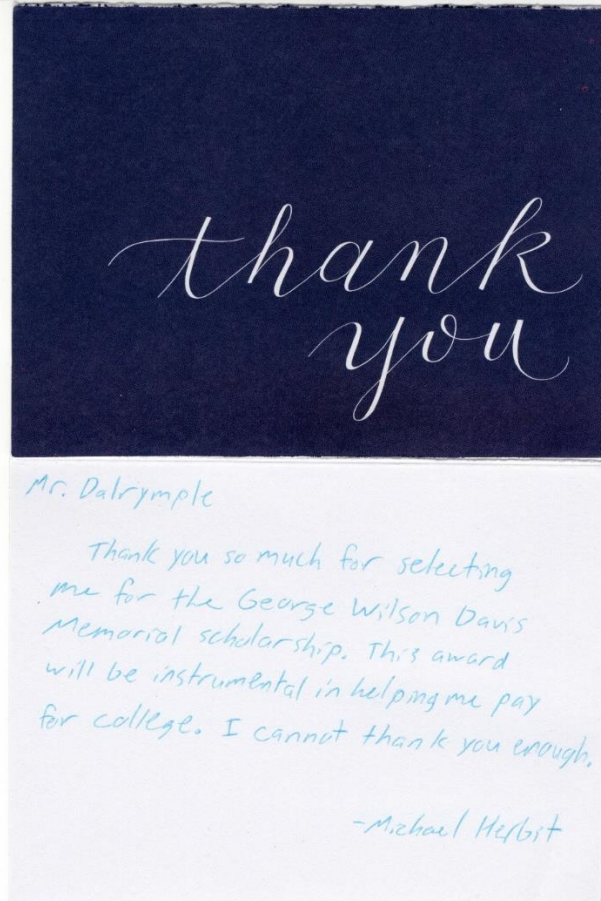 thank
you
Mr. Dalrymple
Thank you so much for selecting
me for the George Wilson Davis
Memorial scholarship. This award
will be instrumental in helping me pay
for college. I cannot thank you enough.
-Michael Herbst